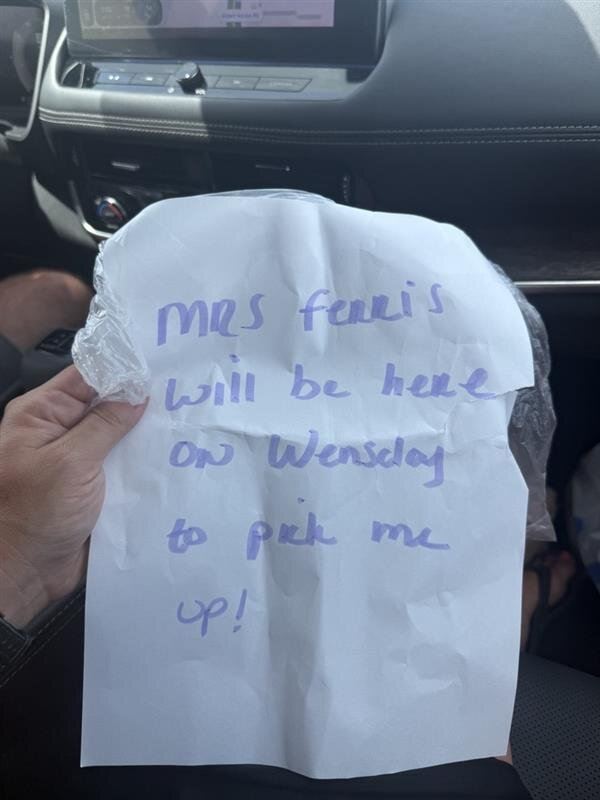 MRS ferris
will be here
on Wensday
to pick me
up!